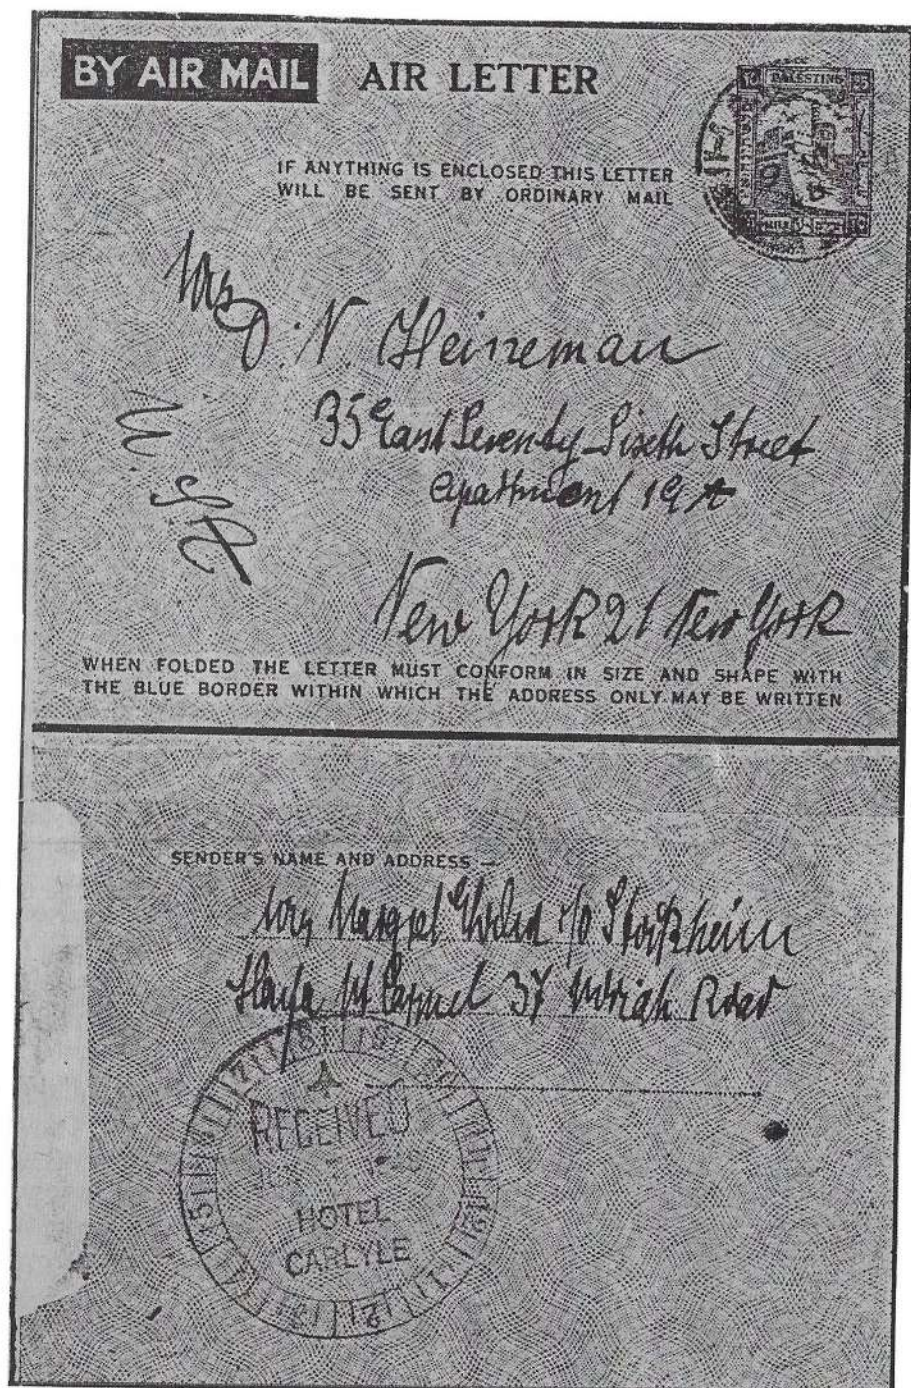 BY AIR MAIL AIR LETTER
PALESTINE
IF ANYTHING IS ENCLOSED THIS LETTER
WILL BE SENT BY ORDINARY MAIL
Mrs
D. N. Heineman
35 East Seventy-Sixth Street
Apartment 19 A
New York 21 New York
U. S. A
WHEN FOLDED THE LETTER MUST CONFORM IN SIZE AND SHAPE WITH
THE BLUE BORDER WITHIN WHICH THE ADDRESS ONLY MAY BE WRITTEN
SENDER'S NAME AND ADDRESS –
Margret c/o
Haifa Mt Carmel 37 Moriah Road
RECEIVED
HOTEL
CARLYLE